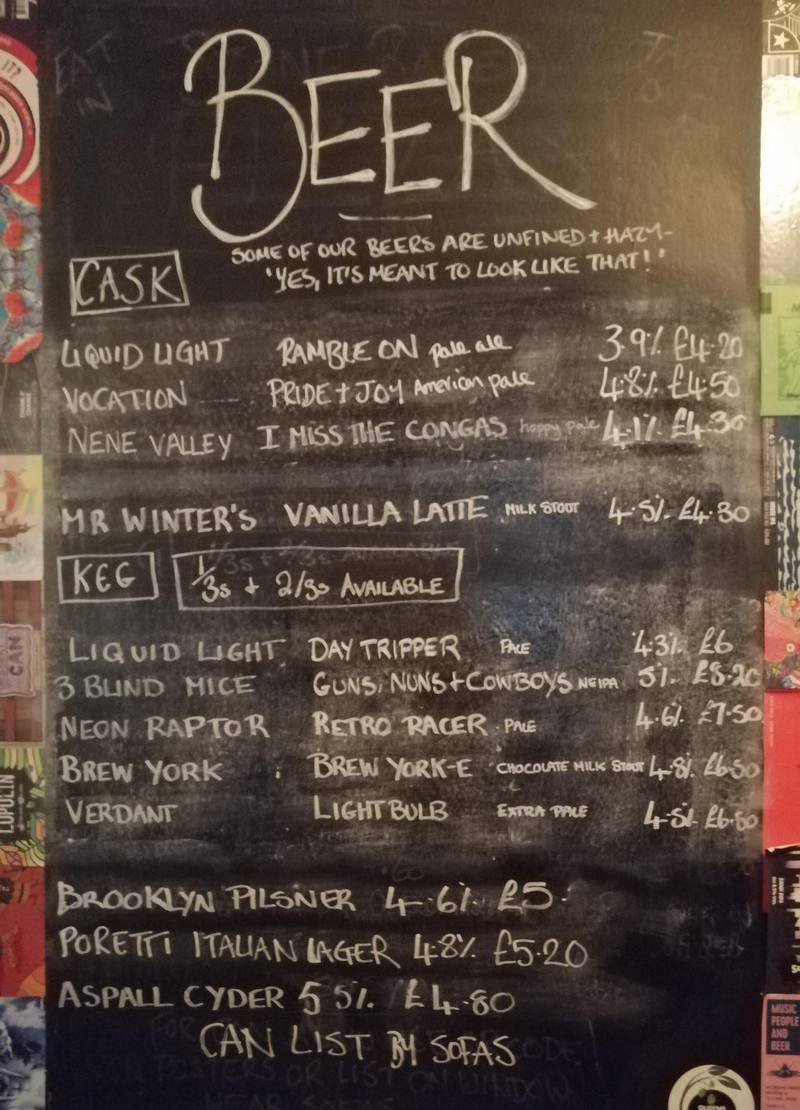 BEER
SOME OF OUR BEERS ARE UNFINED + HAZY-
"YES, IT'S MEANT TO LOOK LIKE THAT!"
CASK
LIQUID LIGHT RAMBLE ON pale ale 3.9% £4.20
VOCATION PRIDE + JOY American pale 4.8% £4.50
NENE VALLEY I MISS THE CONGAS hoppy pale 4.1% £4.30
MR WINTER'S VANILLA LATTE MILK STOUT 4.5% £4.30
KEG 1/3s + 2/3s AVAILABLE
LIQUID LIGHT DAY TRIPPER PALE 4.3% £6
3 BLIND MICE GUNS, NUNS + COWBOYS NEIPA 5% £8.20
NEON RAPTOR RETRO RACER PALE 4.6% £7.50
BREW YORK BREW YORK-E CHOCOLATE MILK STOUT 4.8% £6.50
VERDANT LIGHTBULB EXTRA PALE 4.5% £6.50
BROOKLYN PILSNER 4.6% £5.
PORETTI ITALIAN LAGER 4.8% £5.20
ASPALL CYDER 5.5% £4.80
CAN LIST BY SOFAS
EAT
IN
IT?
CAN
LUPULIN
MUSIC
PEOPLE
AND
BEER